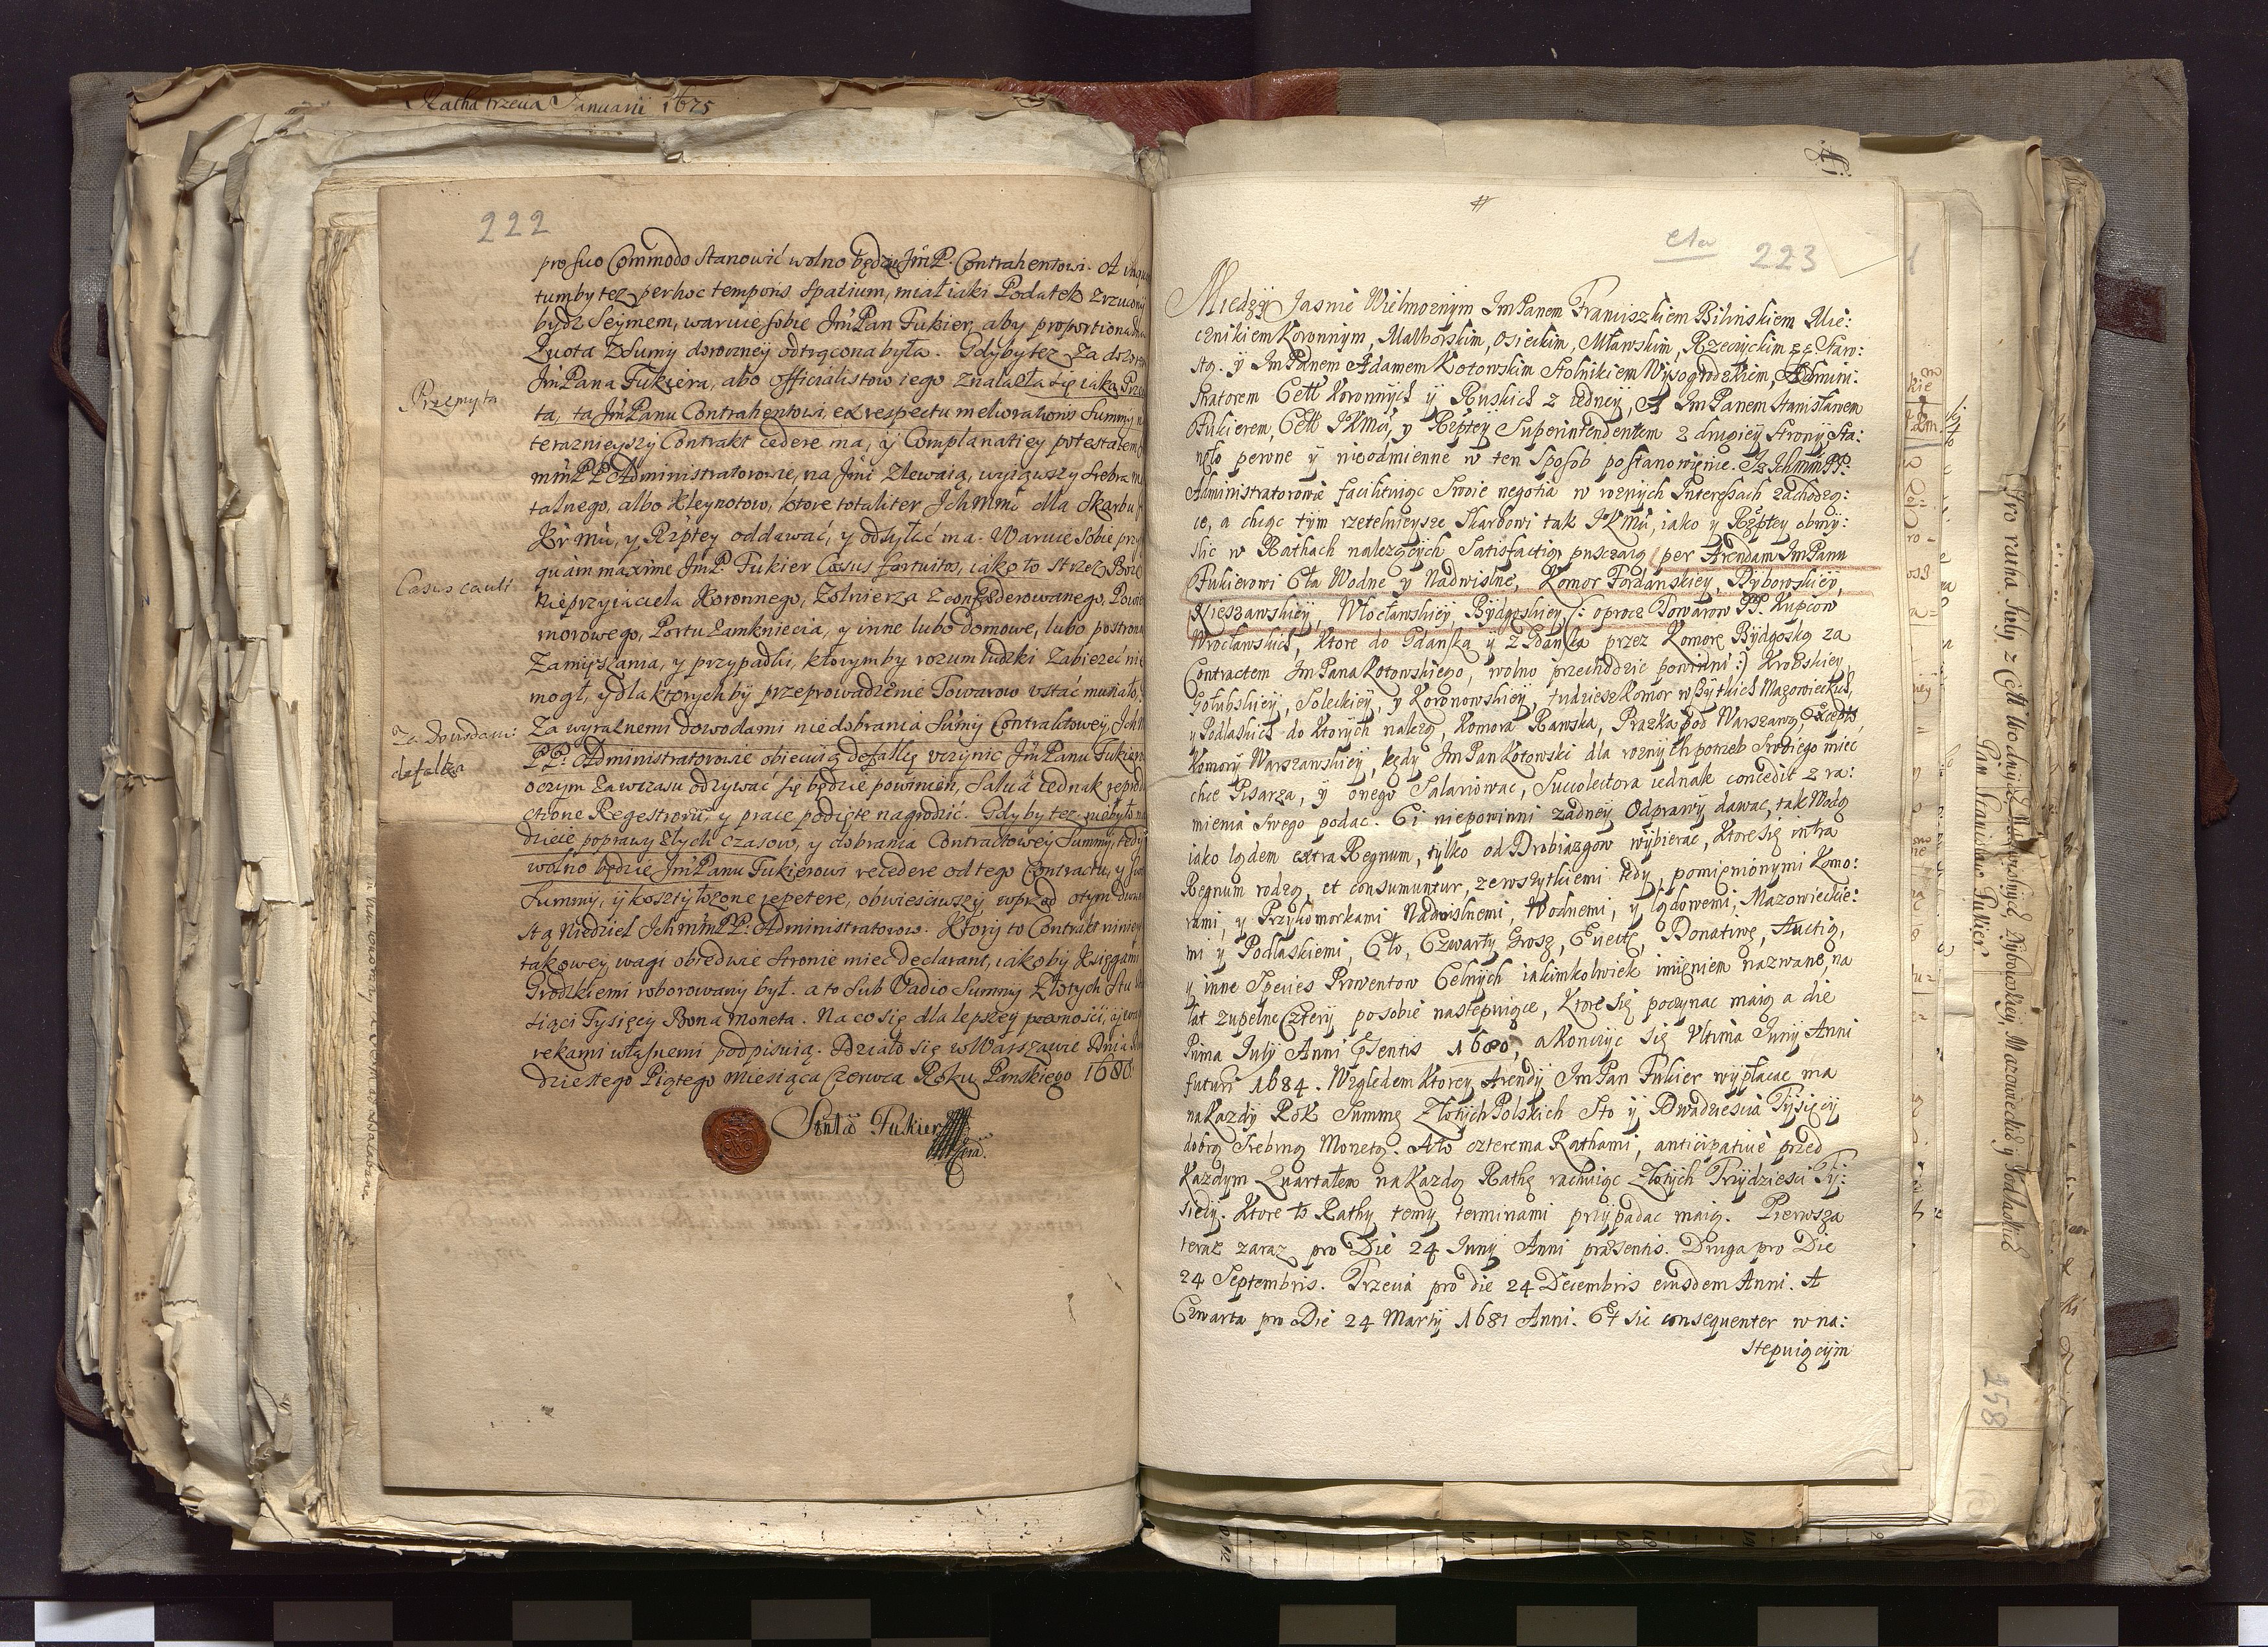 Ratha trzecia Januarii 1675
222
pro suo Commodo stanowić wolno będzie Jm̃P. Contrahentowi. A
tumby tez per hoc temporis spatium, miał iaki Podatek
bydz Seymem, waruie sobie Jm̃Pan Fukier, aby
Quota z Sumy doroczney odtrącona była. Gdyby tez za
Jm̃Pana Fukiera, abo officialistow iego znalazła się iaka
Przemyta
ta, ta Jm̃Panu Contrahentowi, ex respectu meliorationis Summy
teraznieyszy Contrakt cedere ma, y Complanatiey potestatem
m̃m̃PP Administratorowie, na Jm̃ci zlewaią, wyiąwszy srebra
talnego, albo Kleynotow, ktore totaliter Ichm̃m̃ dla Skarbu
JKr Mci, y Rzptey oddawać, y odsyłać ma. Waruie sobie
quam maxime Jm̃P. Fukier Casus fortuitos, iako to strzez Boze
Casus cauti
Nieprzyiaciela Koronnego, Zołnierza zconfederowanego,
morowego, Portu zamkniecia, y inne lubo domowe, lubo
Zamiyszania, y przypadki, ktorymby rozum ludzki zabiezeć
mogł, y dla ktorychby przeprowadzenie Towarow ustać musiało,
Za dowodami
defalka
Za wyraznemi dowodami niedobrania Sumy Contraktowey,
PP. Administratorowie obiecuią defalkę uczynic Jm̃Panu
oczym zawczasu odzywać się będzie powinien, Salua iednak
ctione Regestrorũ, y prace podięte nagrodzić. Gdyby tez niebyło
dzieie poprawy złych czasow, y dobrania Contractowey Summy, tedy
wolno będzie Jm̃Panu Fukierowi recedere od tego Contractu, y
Summy, y koszty łozone repetere, obwiesciwszy wprzod otym
stą Niedziel Ichm̃m̃PP. Administratorow. Ktory to Contrakt
takowey wagi obiedwie stronie miec declarant, iakoby Xięgami
Grodzkiemi roborowany był. a to sub Vadio Summy Złotych Stu
Tysięcy Bona Moneta. Na co się dla lepszey pewności,
rekami własnemi podpisuią. Działo się w Warszawie Dnia
dziestego Piątego Miesiąca Czerwca Roku Panskiego 1680
Fukier
223
Między Jasnie Wielmoznym Jm Panem Franciszkiem Bilinskiem Mie:
cznikiem Koronnym, Malborskim, Osieckim, Mławskim, Rzeczyckim &c. Staro:
stą. y Jm Panem Adamem Kotowskim Stolnikiem Wyszogrodzkiem, Admini:
stratorem Cełł Koronnych y Ruskich z iedney, A Jm Panem Stanisławem
Fukierem, Cełł JKMci, y Rzptey Superintendentem z drugiey Strony, sta:
neło pewne y nieodmienne w ten sposob postanowienie. Iz Ichm̃m̃PP.
Administratorowie facilituiąc swoie negotia w roznych Interessach zachodzą:
ce, a chcąc tym rzetelnieysze Skarbowi tak JKMci, iako y Rzptey obmy:
slic w Rathach nalezących Satisfactią, pusczaią per Arendam Jm Panu
Fukierowi Cła Wodne y Nadwislne, Komor Fordanskiey, Dybowskiey,
Nieszawskiey, Włocławskiey, Bydgoskiey (: oprocz Towarow PP. Kupcow
Wrocławskich, ktore do Gdanska y z Gdanska przez Komorę Bydgoską za
Contractem Jm Pana Kotowskiego, wolno przechodzic powinni :) Krobskiey,
Gołubskiey, Soleckiey, y Koronowskiey, tudziesz Komor wszytkich Mazowieckich,
y Podlaskich do ktorych nalezą, Komora Rawska, Prazka pod Warszawą, Excepto
Komory Warszawskiey, kędy Jm Pan Kotowski dla roznych potrzeb swoiego miec
chce Pisarza, y onego Salariowac, Succolectora iednak concedit z ra:
mienia swego podac. Ci niepowinni zadney Odprawy dawac, tak Wodą
iako lądem extra Regnum, tylko od Drobiazgow wybierac, ktore się intra
Regnum rodzą, et consumuntur, zewszytkiemi tedy, pomienionymi Komo:
rami, y Przykomorkami Nadwislnemi, Wodnemi, y lądowemi, Mazowieckie:
mi y Podlaskiemi, Cło, Czwarty Grosz, Euectę, Donatiwę, Auctią,
y inne Species Prowentow Celnych iakimkolwiek imieniem nazwane, na
lat zupełne Cztery po sobie następuiące, Ktore się poczynac maią a die
Prima July Anni Psentis 1680, a konczyc się Vltima Juny Anni
futuri 1684. Względem ktorey Arendy Jm Pan Fukier wypłacac ma
na kazdy Rok Summę Złotych Polskich Sto y Dwadziescia Tysięcy
dobrą Srebrną Monetą. A to czterema Rathami, anticipatiuè przed
Kazdym Quartałem na kazdą Rathę rachuiąc Złotych Trzydziesci Ty:
sięcy. Ktore to Rathy temy terminami przypadac maią. Pierwsza
teraz zaraz pro Die 24 Juny Anni præsentis. Druga pro Die
24 Septembris. Trzecia pro die 24 Decembris eiusdem Anni. A
Czwarta pro Die 24 Marty 1681 Anni. Et sic consequenter w na:
stepuiącym
Pro ratha July, z Cełł Wodnych, Dybowskiey, Mazowieckich y Podlaskich
Pan Stanisław Fukier
258